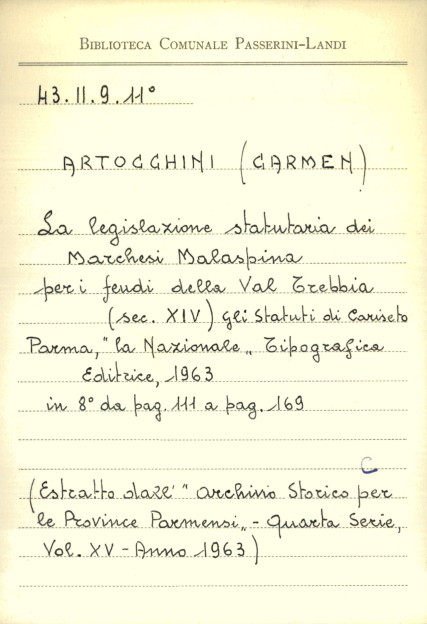 BIBLIOTECA COMUNALE PASSERINI-LANDI
43.II.9.11°
ARTOCCHINI (CARMEN)
La legislazione statutaria dei
Marchesi Malaspina
per i feudi della Val Trebbia
(sec. XIV) Gli Statuti di Cariseto
Parma, "la Nazionale„ Tipografica
Editrice, 1963
in 8° da pag. 111 a pag. 169
C
(Estratto dall' "Archivio Storico per
le Province Parmensi„ - Quarta Serie,
Vol. XV - Anno 1963)